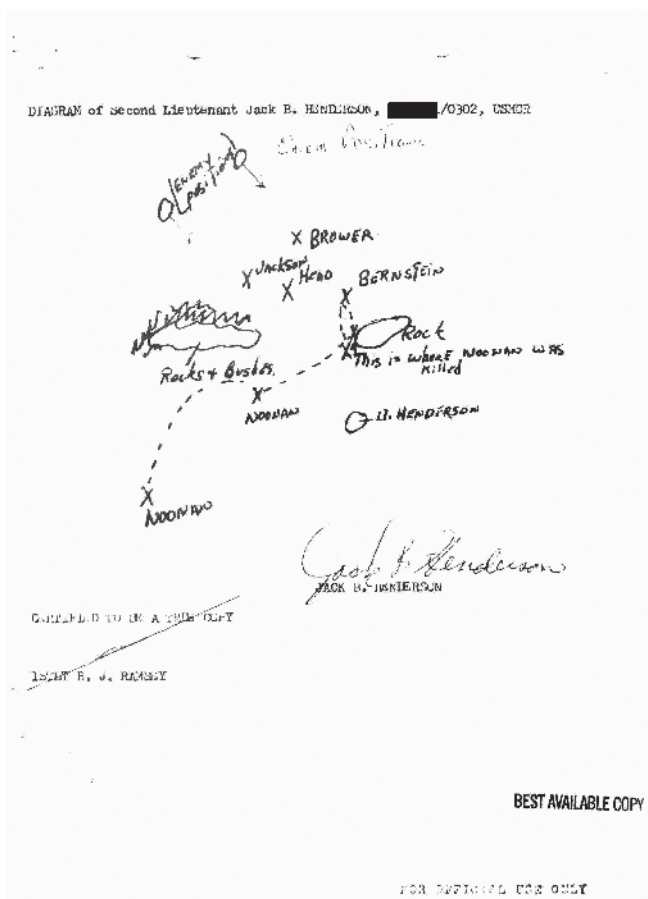 DIAGRAM of Second Lieutenant Jack B. HENDERSON, /0302, USMCR
Enem Positions
ENEMY
POSITION
X BROWER
X JACKSON
X HEAD
X BERNSTEIN
Rock
This is where NOONAN WAS
Killed
Rocks + Bushes
X
NOONAN
Lt. HENDERSON
X
NOONAN
Jack B. Henderson
JACK B. HENDERSON
CERTIFIED TO BE A TRUE COPY
1STLT R. J. RAMSEY
BEST AVAILABLE COPY
FOR OFFICIAL USE ONLY